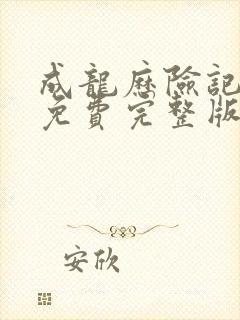 成龍歷險記
免費完整版
安欣